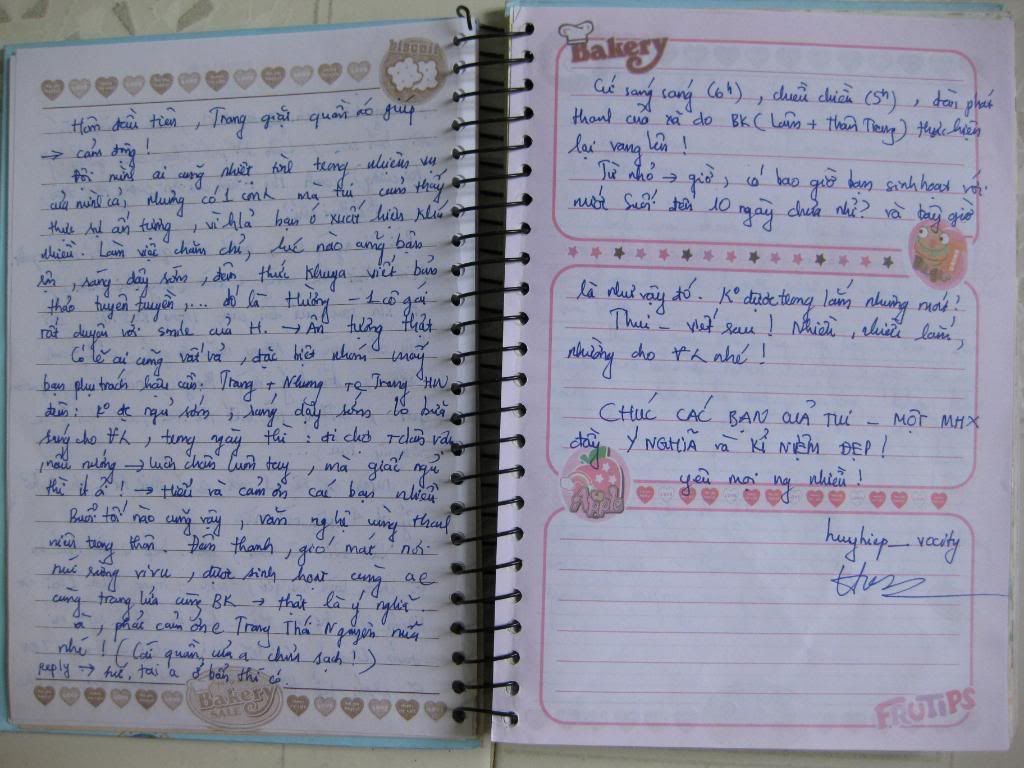 biscuit
Hôm đầu tiên, Trang giặt quần áo giúp
→ cảm động!
Đội mình ai cũng nhiệt tình trong nhiệm vụ
của mình cả, nhưng có 1 cảnh mà tui cảm thấy
thực sự ấn tượng, vì hầu bạn ó xuất hiện khá
nhiều. Làm việc chăm chỉ, lúc nào cũng bận
rộn, sáng dậy sớm, đêm thức khuya viết bản
thảo tuyên truyền,... đó là Hường - 1 cô gái
rất duyên với smile của H. → Ấn tượng thật
Có lẽ ai cũng vất vả, đặc biệt nhóm mấy
bạn phụ trách hậu cần: Trang + Nhung + Trang HN
đêm: k° đc ngủ sớm, sáng dậy sớm lo bữa
sáng cho ∀L, từng ngày thì: đi chợ + chăn
nấu nướng → luôn chân luôn tay, mà giấc ngủ
thì ít ỏi! → Hiểu và cảm ơn các bạn nhiều
Buổi tối nào cũng vậy, văn nghệ cùng thanh
niên trong thôn. Đêm thanh, gió mát nơi
núi rừng vi vu, được sinh hoạt cùng ae
cùng trang lứa cùng BK → thật là ý nghĩa.
à, phải cảm ơn e Trang Thái Nguyên nữa
nhé! (Cái quần của a chưa sạch!)
reply → hic, tại a ở bẩn thì có.
Bakery
SALE
Bakery
Cứ sáng sáng (6h), chiều chiều (5h), đàn phát
thanh của xã do BK (Lâm + Thân Trang) thực hiện
lại vang lên!
Từ nhỏ → giờ, có bao giờ bạn sinh hoạt với
nước suối đến 10 ngày chưa nhỉ? và bây giờ
là như vậy đó. K° được trong lắm nhưng mát!
Thui - viết sau! Nhiều, nhiều lắm,
nhường cho ∀L nhé!
CHÚC CÁC BẠN CỦA TUI - MỘT MHX
đầy Ý NGHĨA và KỈ NIỆM ĐẸP!
yêu mọi ng nhiều!
Apple
huyhiep_vccity
FRUTIPS